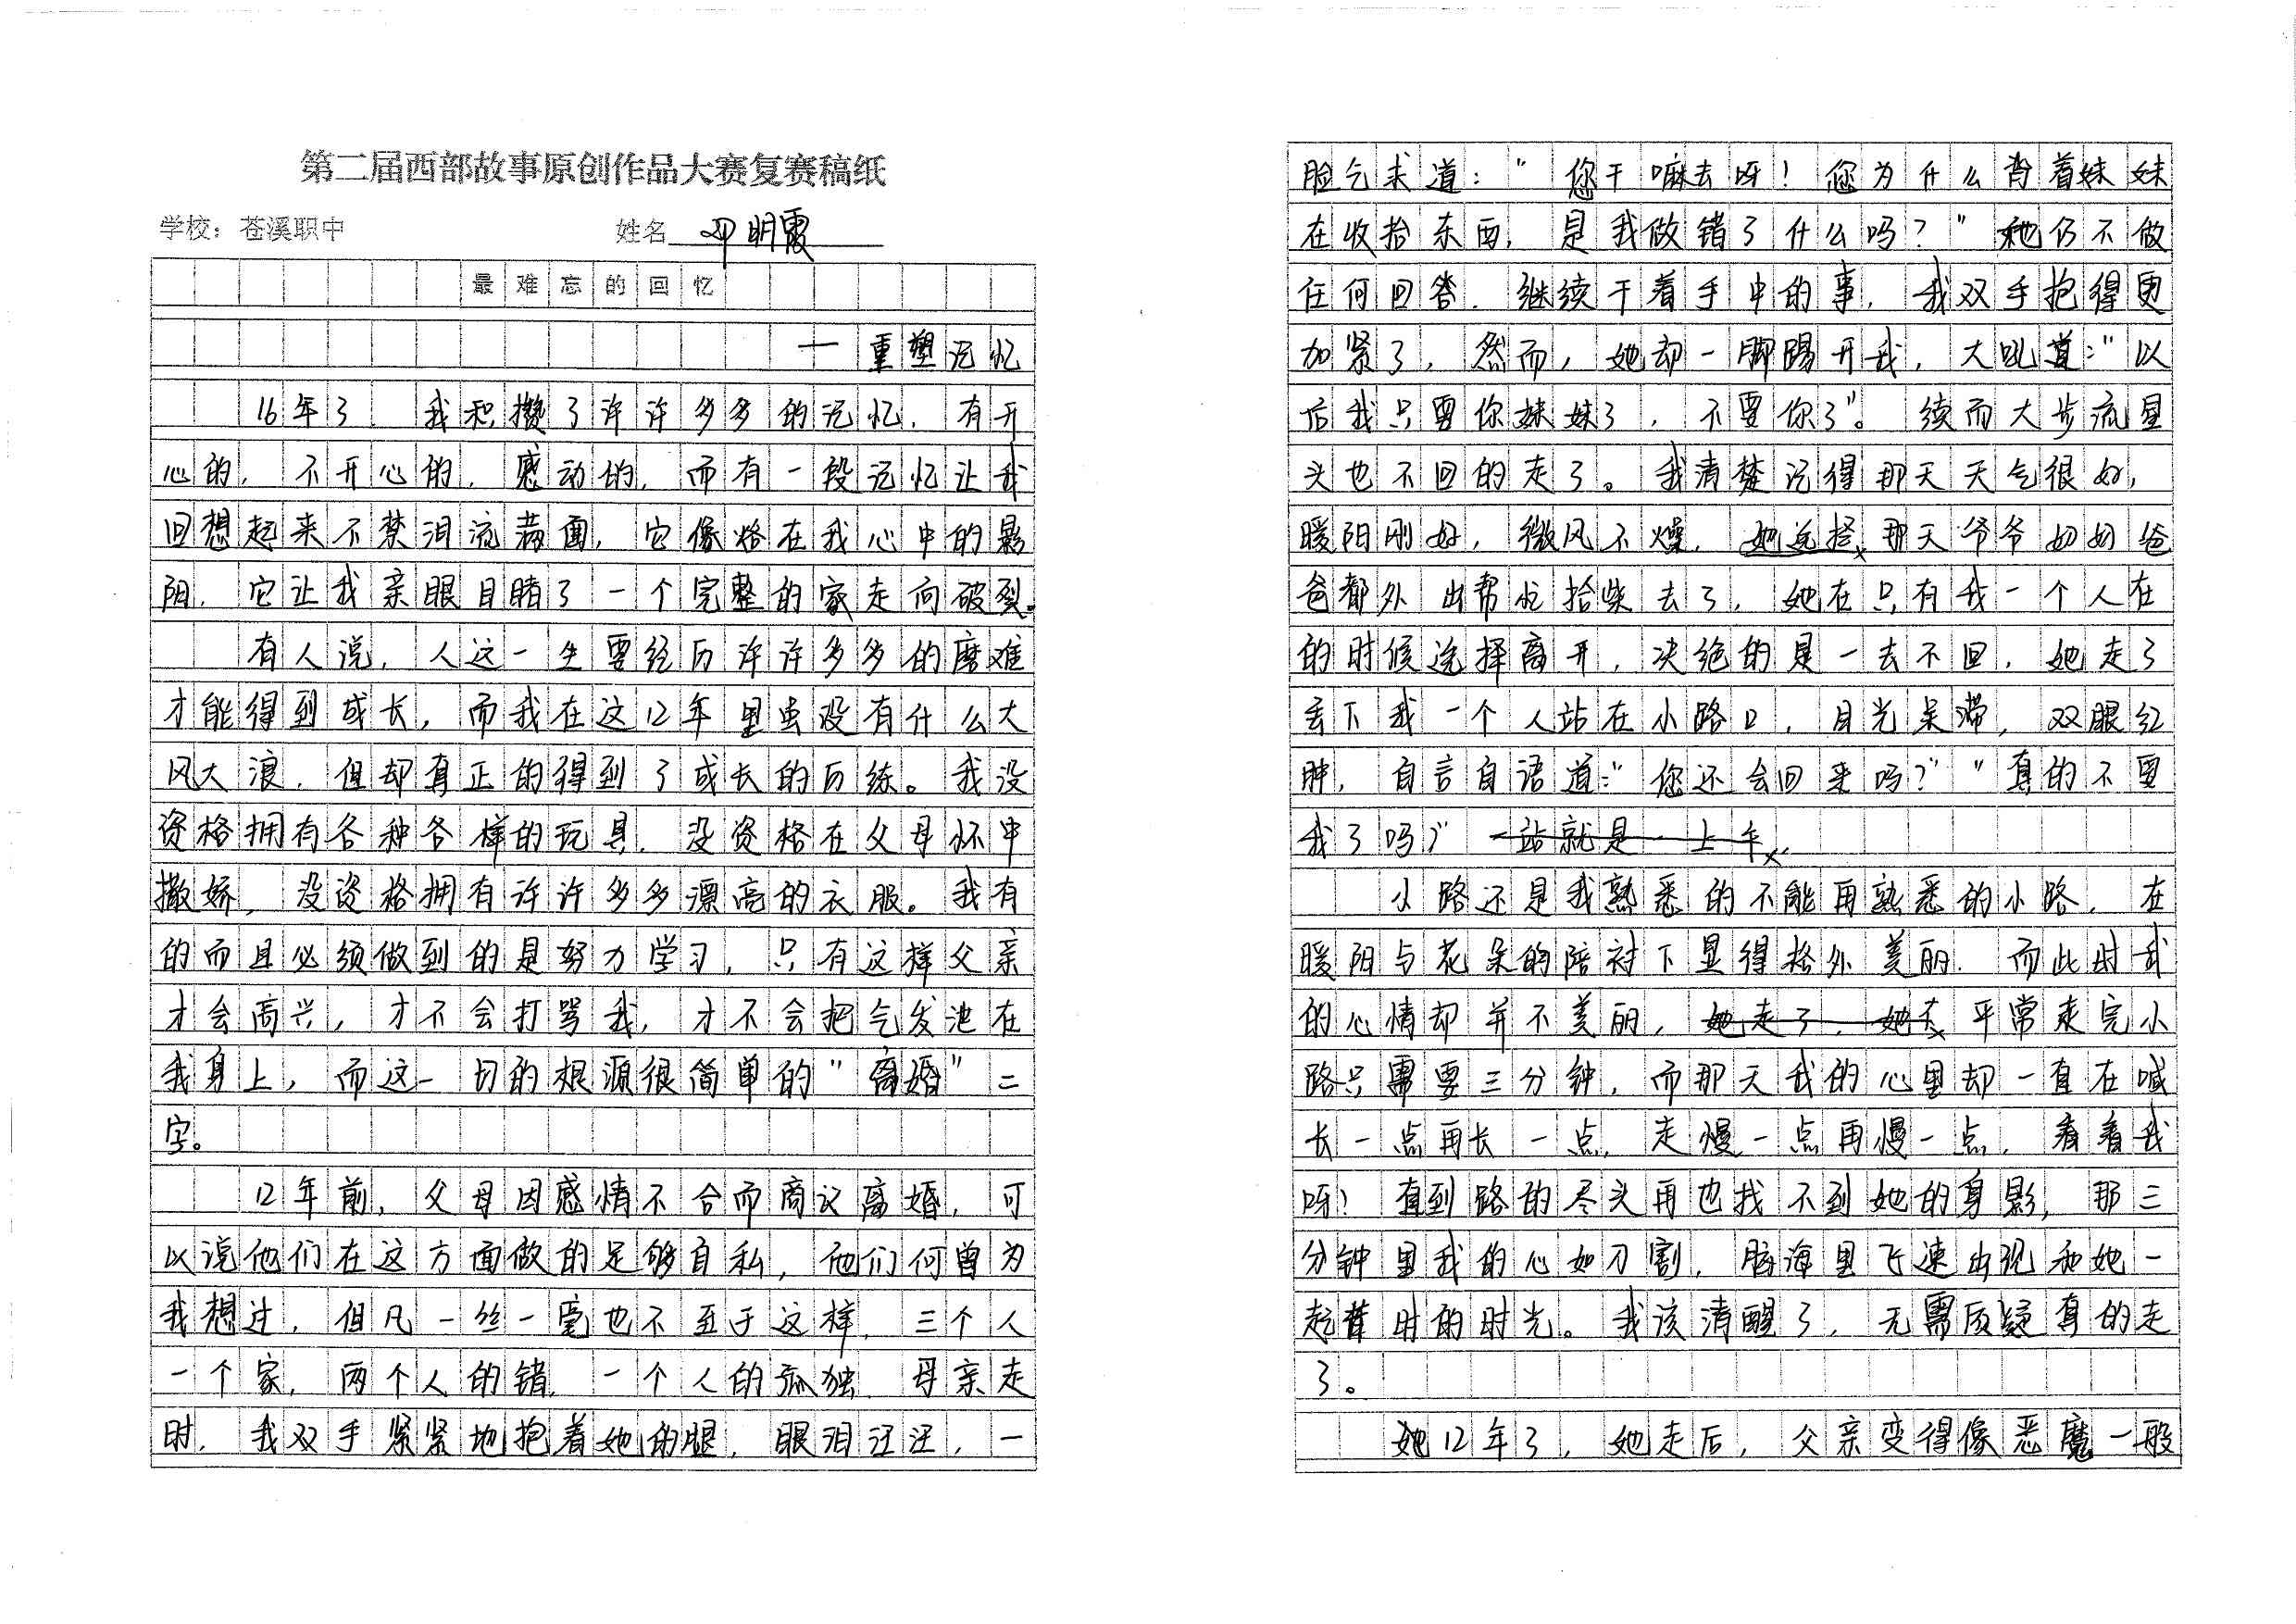 第二届西部故事原创作品大赛复赛稿纸
学校：苍溪职中 姓名 邓明霞
最难忘的回忆
—重塑记忆
16年了，我积攒了许许多多的记忆，有开
心的，不开心的，感动的，而有一段记忆让我
回想起来不禁泪流满面，它像烙在我心中的影
阳，它让我亲眼目睹了一个完整的家走向破裂。
有人说，人这一生要经历许许多多的磨难
才能得到成长，而我在这12年里虽没有什么大
风大浪，但却真正的得到了成长的历练。我没
资格拥有各种各样的玩具，没资格在父母怀中
撒娇，没资格拥有许许多多漂亮的衣服。我有
的而且必须做到的是努力学习，只有这样父亲
才会高兴，才不会打骂我，才不会把气发泄在
我身上，而这一切的根源很简单的“离婚”二
字。
12年前，父母因感情不合而商议离婚，可
以说他们在这方面做的足够自私，他们何曾为
我想过，但凡一丝一毫也不至于这样，三个人
一个家，两个人的错，一个人的孤独，母亲走
时，我双手紧紧地抱着她的腿，眼泪汪汪，一
脸乞求道：“您干嘛去呀！您为什么背着妹妹
在收拾东西，是我做错了什么吗？”她仍不做
任何回答，继续干着手中的事，我双手抱得更
加紧了，然而，她却一脚踢开我，大吼道：“以
后我只要你妹妹了，不要你了”。续而大步流星
头也不回的走了。我清楚记得那天天气很好，
暖阳刚好，微风不燥，她选择那天爷爷奶奶爸
爸都外出帮忙拾柴去了，她在只有我一个人在
的时候选择离开，决绝的是一去不回，她走了
丢下我一个人站在小路口，目光呆滞，双眼红
肿，自言自语道：“您还会回来吗？”“真的不要
我了吗？”一站就是一上午
小路还是我熟悉的不能再熟悉的小路，在
暖阳与花朵的陪衬下显得格外美丽，而此时我
的心情却并不美丽，她走了，她走平常走完小
路只需要三分钟，而那天我的心里却一直在喊
长一点再长一点，走慢一点再慢一点，看看我
呀！直到路的尽头再也找不到她的身影，那三
分钟里我的心如刀割，脑海里飞速出现和她一
起昔时的时光。我该清醒了，无需质疑真的走
了。
她12年了，她走后，父亲变得像恶魔一般